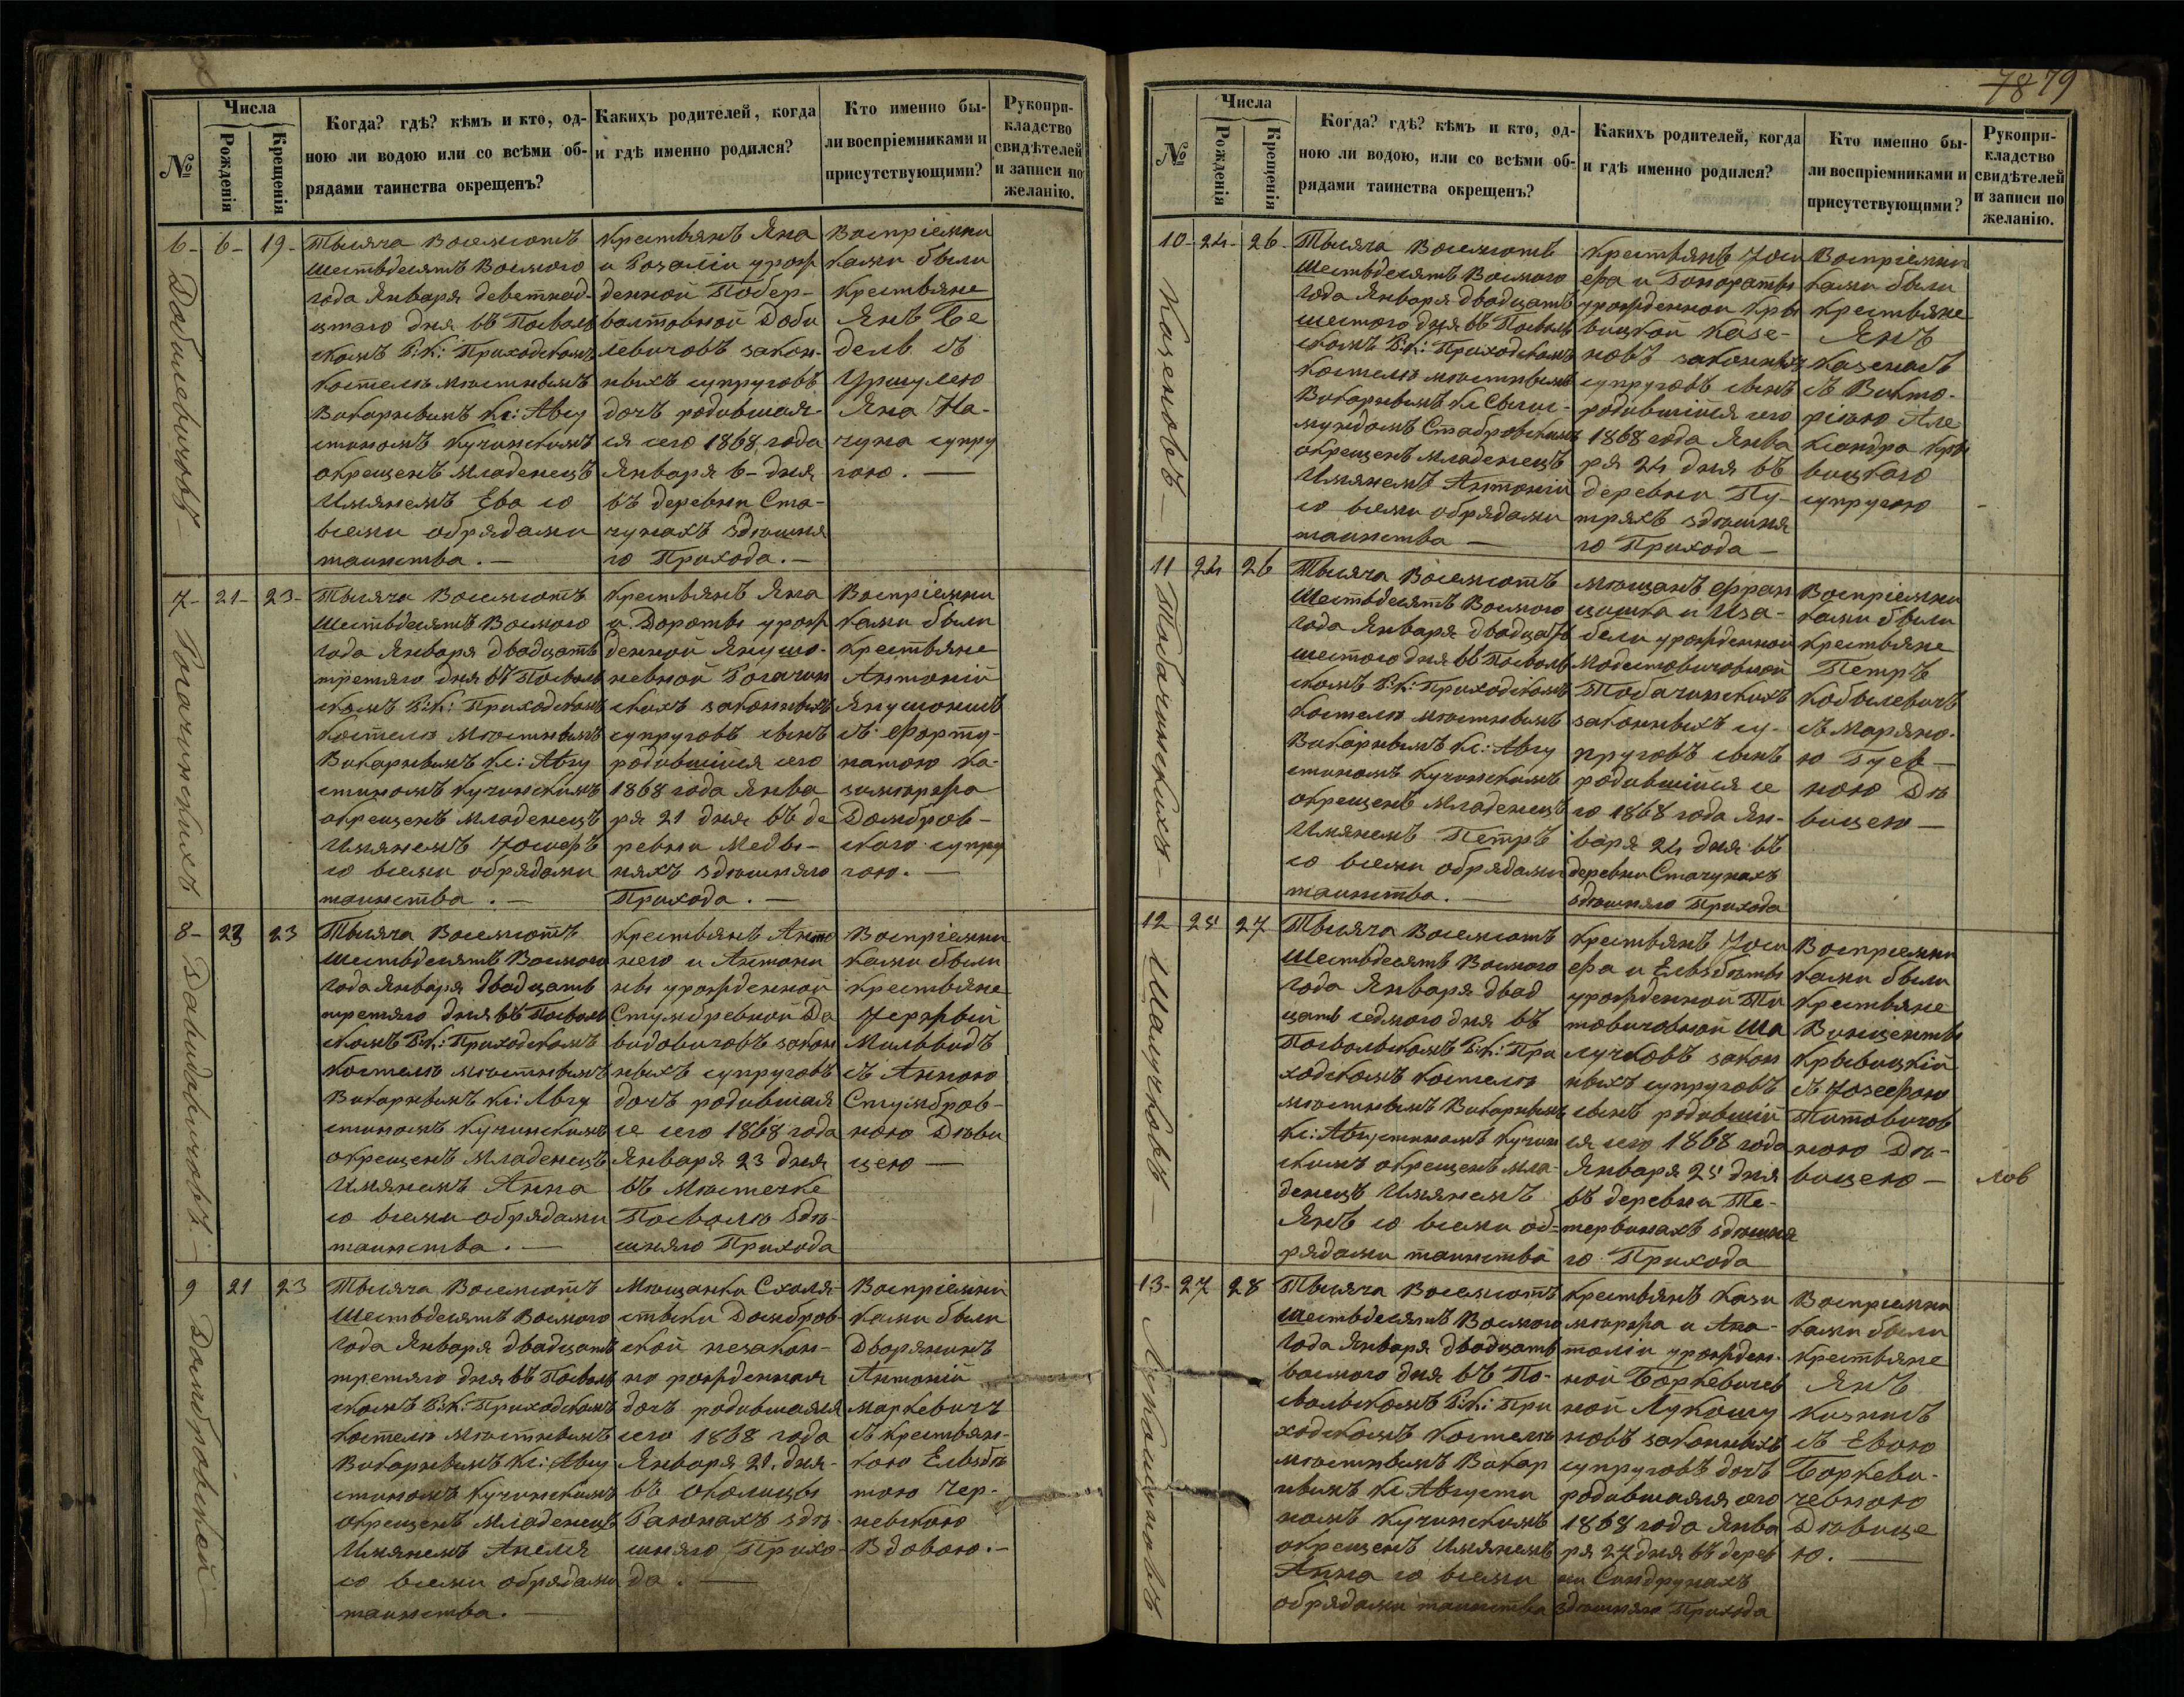 №
Числа
Рожденія
Крещенія
Когда? гдѣ? кѣмъ и кто, од-
ною ли водою или со всѣми об-
рядами таинства окрещенъ?
Какихъ родителей, когда
и гдѣ именно родился?
Кто именно бы-
ли воспріемниками и
присутствующими?
Рукопри-
кладство
свидѣтелей
и записи по
желанію.
6- 6- 19-
Добилевичовъ-
Тысяча восемсотъ
шестьдесятъ восмого
года Января деветнад-
цтаго дня въ Посволь
скомъ Р:К: Приходскомъ
костелѣ мѣстнымъ
Викарнымъ Кс: Авгу
стиномъ Кучинскимъ
окрещенъ младенецъ
Имянемъ Ева со
всеми обрядами
таинства. —
Крестьянъ Яна
и Розаліи урож
денной Побер-
волтовной Доби
левичовъ закон-
ныхъ супруговъ
дочъ родившая-
ся сего 1868 года
Января 6- дня
въ деревни Ста-
чунахъ здѣшня
го Прихода. —
Воспріемни
ками были
Крестьяне
Янъ Бе
дель съ
Уршулею
Яна На-
чуна супру
гою. —
7- 21- 23-
Рогачинскихъ
Тысяча восемсотъ
шестьдесятъ восмого
года Января двадцать
третяго дня въ Посволь
скомъ Р:К: Приходскомъ
костелѣ мѣстнымъ
Викарнымъ Кс: Авгу
стиномъ Кучинскимъ
окрещенъ младенецъ
Имянемъ Іосифъ
со всеми обрядами
таинства. —
Крестьянъ Яна
и Дороты урож
денной Янушо-
невной Рогачин
скихъ законныхъ
супруговъ сынъ
родившійся сего
1868 года Янва
ря 21 дня въ де
ревни Меды-
няхъ здѣшняго
Прихода. —
Воспріемни
ками были
Крестьяне
Антоній
Янушонисъ
съ Форту-
натою Ка-
зимѣржа
Домбров-
скаго супру
гою. —
8- 23 23
Давидавичовъ. —
Тысяча восемсотъ
шестьдесятъ восмого
года Января двадцать
третяго дня въ Посволь
скомъ Р:К: Приходскомъ
костелѣ мѣстнымъ
Викарнымъ Кс: Авгу
стиномъ Кучинскимъ
окрещенъ младенецъ
Имянемъ Анна
со всеми обрядами
таинства. —
Крестьянъ Анто
него и Антони
ны урожденной
Стумбревной Да
видовичовъ закон
ныхъ супруговъ
дочъ родившая
се сего 1868 года
Января 23 дня
въ Мѣстечке
Посволю здѣ-
шняго Прихода
Воспріемни
ками были
Крестьяне
Іержый
Мильвидъ
съ Анною
Стумбров-
ною Дѣви
цею —
9 21 23
Домбровской
Тысяча восемсотъ
шестьдесятъ восмого
года Января двадцать
третяго дня въ Посволь
скомъ Р:К: Приходскомъ
костелѣ мѣстнымъ
Викарнымъ Кс: Авгу
стиномъ Кучинскимъ
окрещенъ младенецъ
Имянемъ Анеля
со всеми обрядами
таинства. —
Мѣщанки Схоля-
стыки Домбров-
ской незакон-
но рожденная
дочъ родившаяя
сего 1868 года
Января 21. дня-
въ околицы
Раюнахъ здѣ-
шняго Прихо-
да. —
Воспріемни
ками были
Дворянинъ
Антоній
Маркевичъ
съ Крестьян-
кою Ельзбѣ
тою Чер-
невскою
Вдовою. —
78 79
№
Числа
Рожденія
Крещенія
Когда? гдѣ? кѣмъ и кто, од-
ною ли водою, или со всѣми об-
рядами таинства окрещенъ?
Какихъ родителей, когда
и гдѣ именно родился?
Кто именно бы-
ли воспріемниками и
присутствующими?
Рукопри-
кладство
свидѣтелей
и записи по
желанію.
10- 24- 26-
Казеновъ —
Тысяча восемсотъ
шестьдесятъ восмого
года Января двадцать
шестого дня въ Посволь
скомъ Р:К: Приходскомъ
костелѣ мѣстнымъ
Викарнымъ Кс Сыгис-
мундомъ Стабровскимъ
окрещенъ младенецъ
Имянемъ Антоній
со всеми обрядами
таинства —
Крестьянъ Іоси
ефа и Гонораты
урожденной Кры
вицкой Казе-
новъ законныхъ
супруговъ сынъ
родившійся сего
1868 года Янва
ря 24 дня въ
деревни Пу-
тряхъ здѣшня
го Прихода —
Воспріемни
ками были
Крестьяне
Янъ
Казенасъ
съ Викто-
ріею Але
ксандра Кры
вицкаго
супругою
11 24 26
Тобачинскихъ —
Тысяча восемсотъ
шестьдесятъ восмого
года Января двадцать
шестого дня въ Посволь
скомъ Р:К: Приходскомъ
костелѣ мѣстнымъ
Викарнымъ Кс: Авгу
стиномъ Кучинскимъ
окрещенъ младенецъ
Имянемъ Петръ
со всеми обрядами
таинства. —
Мѣщанъ Фран
цишка и Иза-
бели урожденной
Модестовичовной
Тобачинскихъ
законныхъ су-
пруговъ сынъ
родившійся се
го 1868 года Ян-
варя 24 дня въ
деревни Стачунахъ
здѣшняго Прихода
Воспріемни
ками были
Крестьяне
Петръ
Кобылевичъ
съ Маріяно-
ю Гуев-
ною Дѣ
вицею —
12 25 27
Шалучковъ —
Тысяча восемсотъ
шестьдесятъ восмого
года Января двад
цать седмого дня въ
Посвольскомъ Р:К: При
ходскомъ костелѣ
мѣстнымъ Викарнымъ
Кс: Августиномъ Кучин
скимъ окрещенъ мла-
денецъ Имянемъ
Янъ со всеми об-
рядами таинства
Крестьянъ Іоси
ефа и Ельзбѣты
урожденной Ти
товичовной Ша
лучковъ закон
ныхъ супруговъ
сынъ родившій
ся сего 1868 года
Января 25 дня
въ деревни Те-
тервинахъ здѣшня
го Прихода
Воспріемни
ками были
Крестьяне
Винцентый
Крывицкій
съ Іозефою
Титовичов
ною Дѣ-
вицею —
лов
13- 27 28
Лукошуновъ
Тысяча восемсотъ
шестьдесятъ восмого
года Января двадцать
восмого дня въ По-
свольскомъ Р:К: При
ходскомъ костелѣ
мѣстнымъ Викар
нымъ Кс Августи
номъ Кучинскимъ
окрещенъ Имянемъ
Анна со всеми
обрядами таинства
Крестьянъ Кази
мѣржа и Ана-
толіи урожден-
ной Боркевичев
ной Лукошу
новъ законныхъ
супруговъ дочъ
родившаяя сего
1868 года Янва
ря 27 дня въ дерев
ни Синдрунахъ
здѣшняго Прихода
Воспріемни
ками были
Крестьяне
Янъ
съ Евою
Боркеви-
чевною
Дѣвице
ю. —